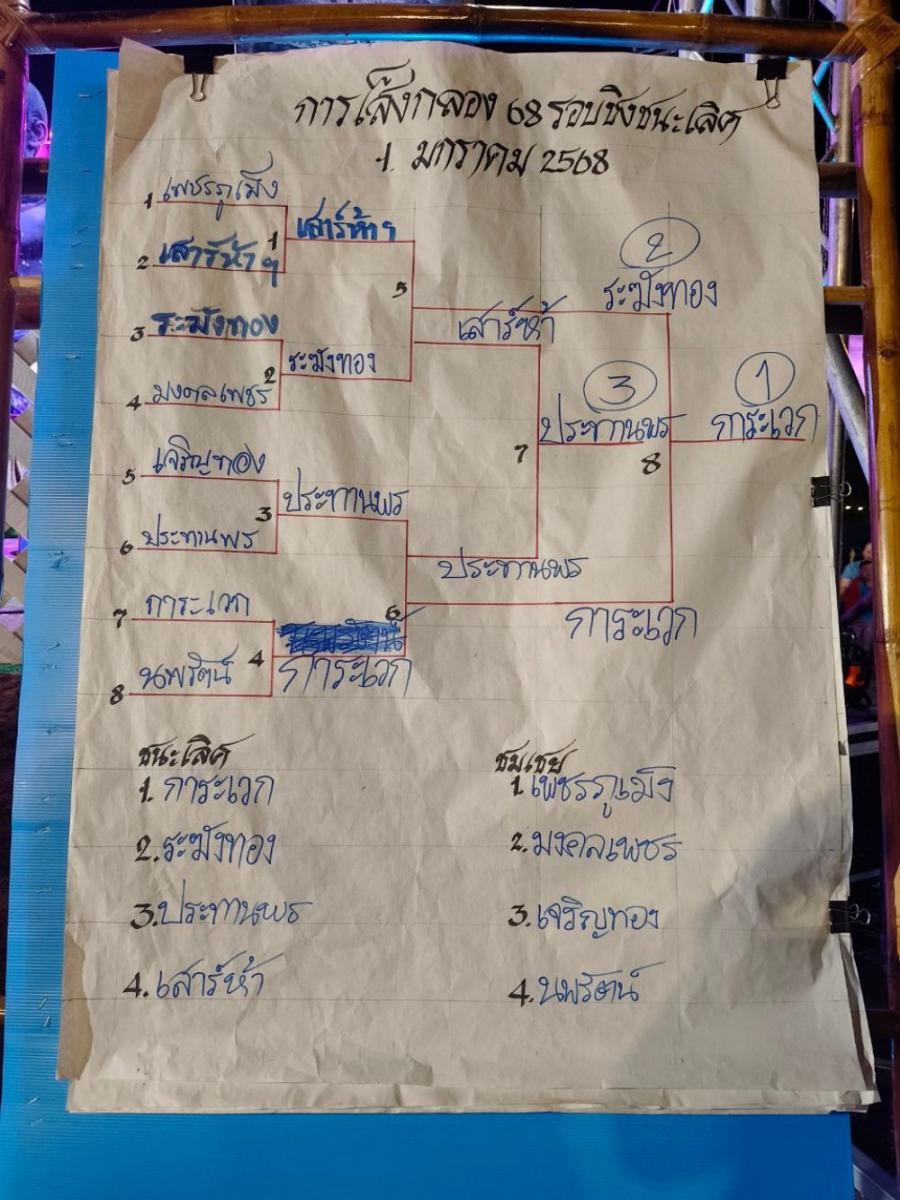 การเส็งกลอง 68 รอบชิงชนะเลิศ
1 มกราคม 2568
1 เพชรภูเม็ง
2 เสาร์ห้า ๆ
1 เสาร์ห้า ๆ
3 ระฆังทอง
4 มงคลเพชร
2 ระฆังทอง
5
เสาร์ห้า
2
ระฆังทอง
5 เจริญทอง
6 ประทานพร
3 ประทานพร
7 การะเวก
8 นพรัตน์
4 การะเวก
6
ประทานพร
การะเวก
7
3
ประทานพร
8
1
การะเวก
ชนะเลิศ
1. การะเวก
2. ระฆังทอง
3. ประทานพร
4. เสาร์ห้า
ชมเชย
1. เพชรภูเม็ง
2. มงคลเพชร
3. เจริญทอง
4. นพรัตน์